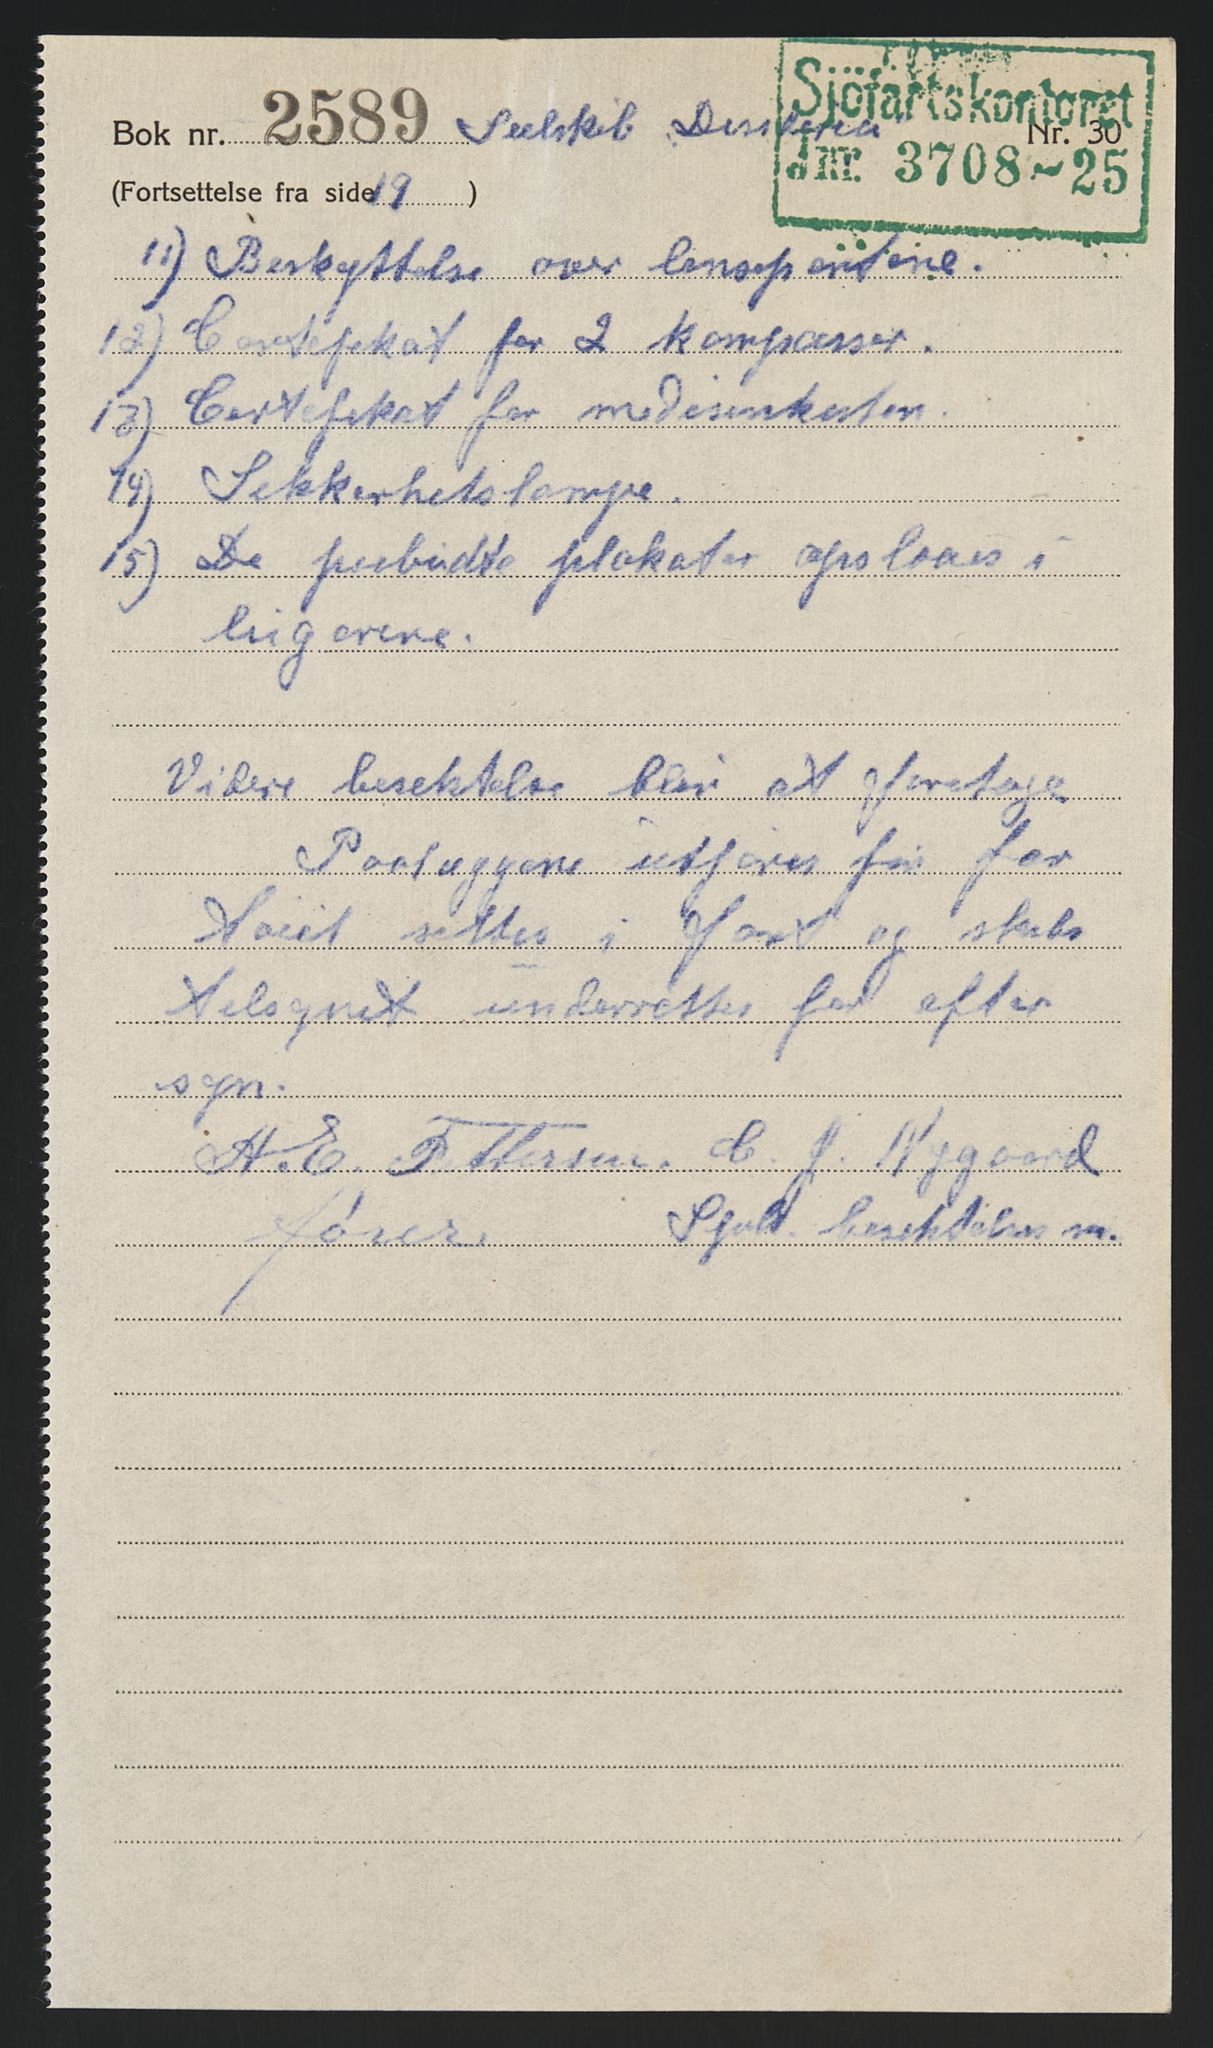 Bok nr. 2589 Seelskib Desideria Nr. 30
Sjöfartskontoret
Jnr. 3708-25
(Fortsettelse fra side 19 )
11) Beskyttelse over lensepentene.
12) Certefikat for 2 kompasser.
13) Certefikat for medisinkesten.
14) Sekkerhetslampe.
15) De peebudte plakater opslaaes i
lugarene.
Videre besektelse blir at foretage
Paalæggene utføres før far
tøiet settes i fart og skibs
telsynet underrettes for efter
syn.
H. E. Pettersen. C. J. Nygaard
fører. Sjøk. besektelses m.